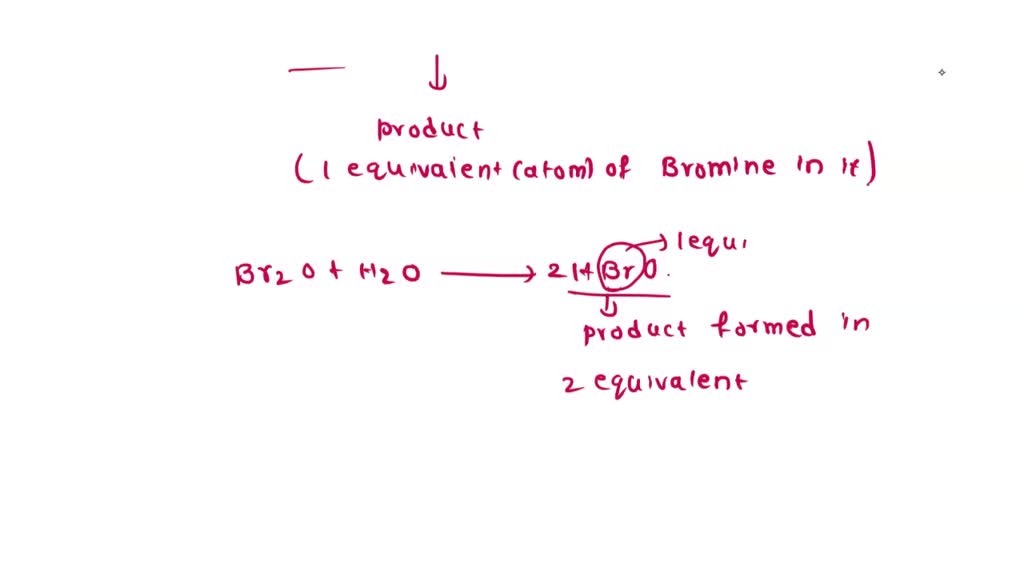 product
(1 equivalent (atom) of Bromine in it)
→ 1equi
Br2O + H2O → 2HBrO.
product formed in
2 equivalent